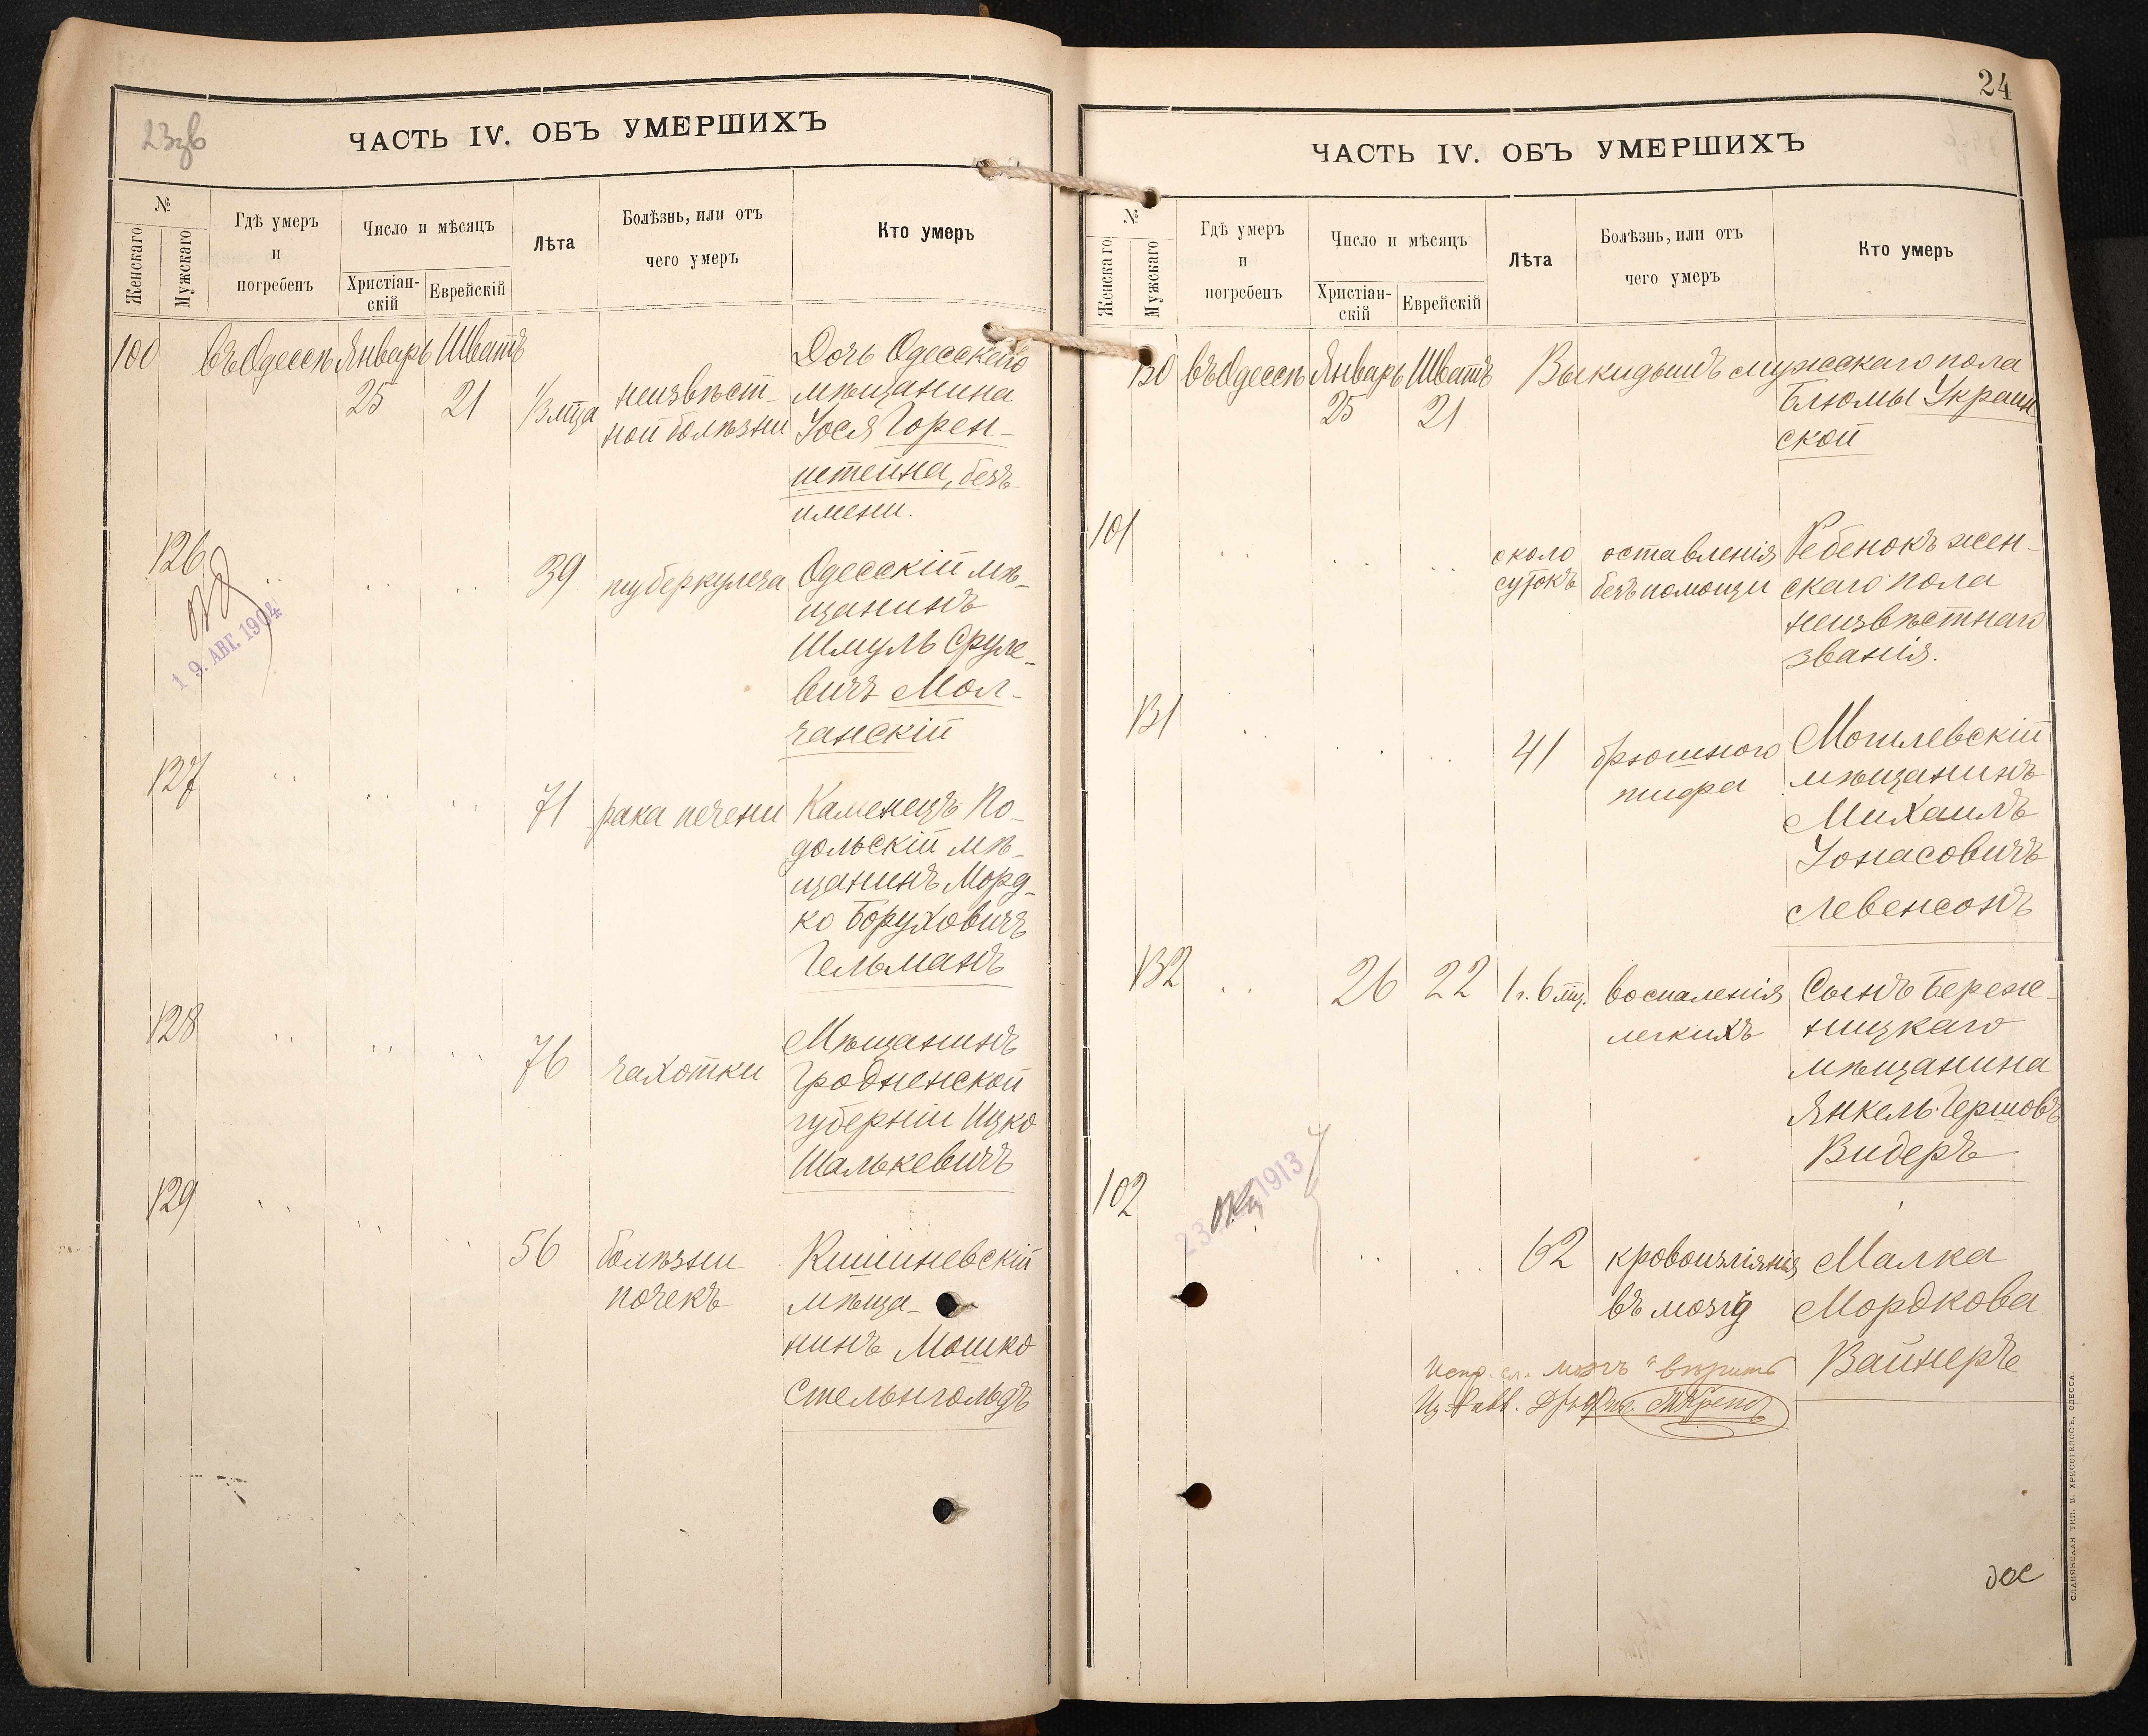 23зв
ЧАСТЬ IV. ОБЪ УМЕРШИХЪ
№
Женскаго
Мужскаго
Гдѣ умеръ
и
погребенъ
Число и мѣсяцъ
Христіан-
скій
Еврейскій
Лѣта
Болѣзнь, или отъ
чего умеръ
Кто умеръ
100 въ Одессѣ Январь Шватъ Дочь Одесскаго
25 21 1/3 мѣца неизвѣст- мѣщанина
ной болѣзни Іося Горен-
штейна, безъ
имени.
126 39 туберкулеза Одесскій мѣ-
щанинъ
19. АВГ. 1904
Шмуль Сруле-
вичъ Мол-
чанскій
127 71 рака печени Каменецъ-По-
дольскій мѣ-
щанинъ Морд-
ко Боруховичъ
Гельманъ
128 76 чахотки Мѣщанинъ
Гродненской
губерніи Ицко
Шалькевичъ
129 56 болѣзни Кишиневскій
почекъ мѣща-
нинъ Мошко
Стельнгольдъ
24
ЧАСТЬ IV. ОБЪ УМЕРШИХЪ
№
Женскаго
Мужскаго
Гдѣ умеръ
и
погребенъ
Число и мѣсяцъ
Христіан-
скій
Еврейскій
Лѣта
Болѣзнь, или отъ
чего умеръ
Кто умеръ
130 въ Одессѣ Январь Шватъ Выкидышъ мужскаго пола
25 21 Блюмы Украин
ской
101 около оставленія Ребенокъ жен-
сутокъ безъ помощи скаго пола
неизвѣстнаго
званія.
131 41 брюшного Могилевскій
тифа мѣщанинъ
Михаилъ
Іонасовичъ
Левенсонъ
132 26 22 1 г. 6 мц. воспаленія Сынъ Береж-
легкихъ ницкаго
мѣщанина
Янкель Гершовъ
Видеръ
102 62 кровоизліянія Малка
1913
въ мозгъ Мордкова
Вайнеръ
Испр. сл. "мозгъ" вѣрить
дое
СЛАВЯНСКАЯ ТИП. Е. ХРИСОГЕЛОСЪ, ОДЕССА.